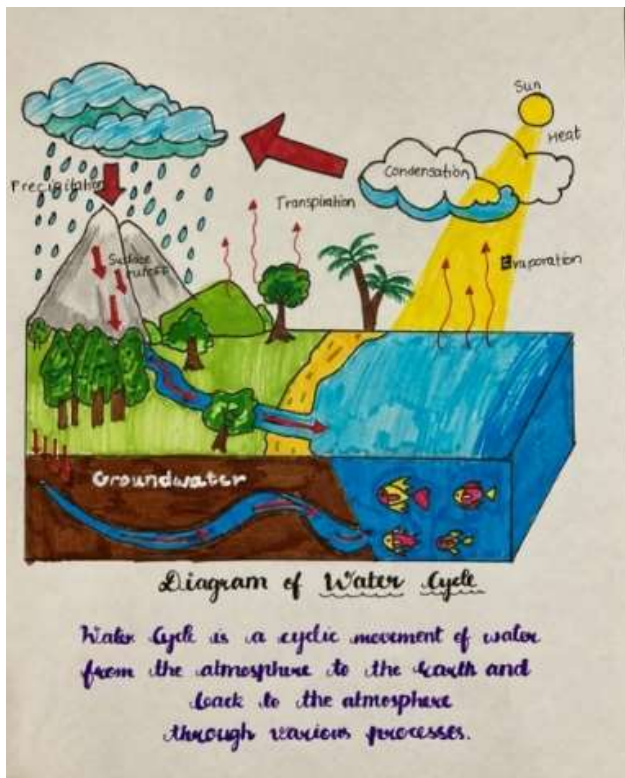 Sun
Heat
Condensation
Precipitation
Transpiration
Surface
runoff
Evaporation
Groundwater
Diagram of Water Cycle
Water Cycle is a cyclic movement of water
from the atmosphere to the Earth and
back to the atmosphere
through various processes.